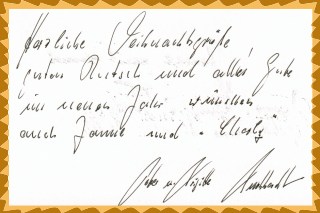 Herzliche Weihnachtsgrüße
guten Rutsch und alles Gute
im neuen Jahr wünschen
auch und "
Peter u. Brigitte